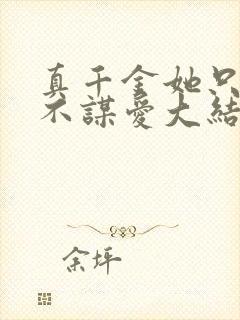 真千金她只
不謀愛大結
余坪